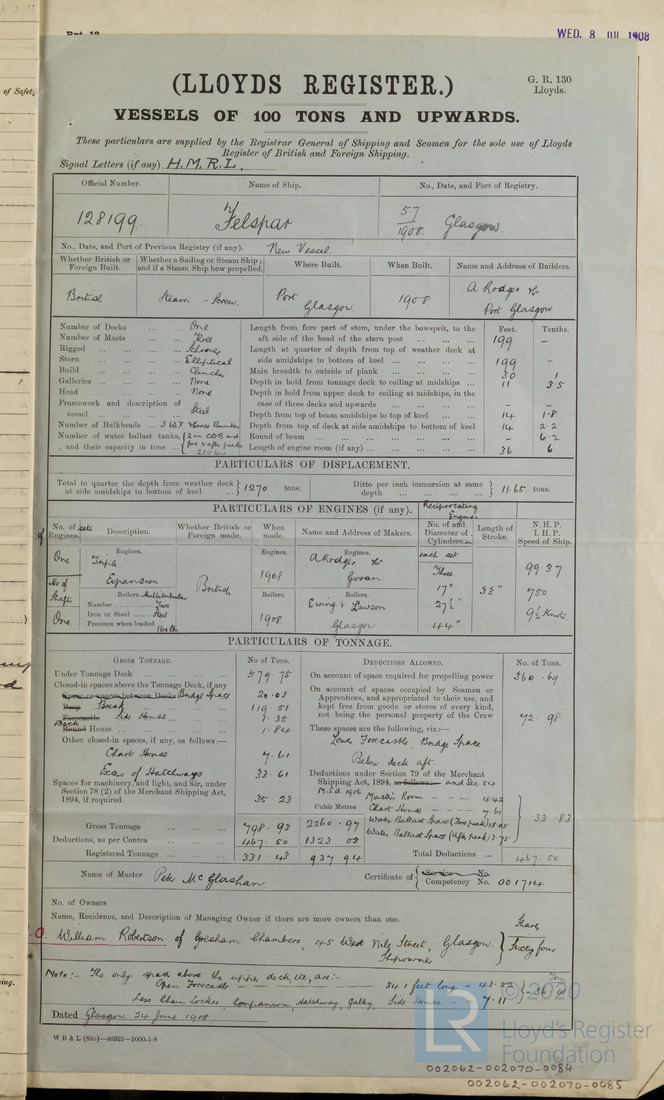 Rpt. 12
WED. 8 JUL 1908
of Safety
(LLOYDS REGISTER.)
G. R. 130
Lloyds.
VESSELS OF 100 TONS AND UPWARDS.
These particulars are supplied by the Registrar General of Shipping and Seamen for the sole use of Lloyds
Register of British and Foreign Shipping.
Signal Letters (if any) H.M.R.L.
Official Number. Name of Ship. No., Date, and Port of Registry.
128199. Felspar 57/1908. Glasgow.
No., Date, and Port of Previous Registry (if any). New Vessel.
Whether British or Foreign Built. Whether a Sailing or Steam Ship; and if a Steam Ship how propelled. Where Built. When Built. Name and Address of Builders.
British Steam - Screw. Port Glasgow 1908 A Rodger & Co Port Glasgow
Number of Decks ... ... One
Number of Masts ... Three
Rigged ... ... ... Schooner
Stern ... ... ... Elliptical
Build ... ... ... Clincher
Galleries ... ... ... None
Head ... ... ... None
Framework and description of vessel ... ... ... Steel
Number of Bulkheads ... 3 W.T.
Number of water ballast tanks, and their capacity in tons ... 2 in CDB and fore & after peaks
Length from fore part of stem, under the bowsprit, to the aft side of the head of the stern post ... 199 -
Length at quarter of depth from top of weather deck at side amidships to bottom of keel ... 199 -
Main breadth to outside of plank ... 30 1
Depth in hold from tonnage deck to ceiling at midships ... 11 3.5
Depth in hold from upper deck to ceiling at midships, in the case of three decks and upwards ... - -
Depth from top of beam amidships to top of keel ... 14 1.8
Depth from top of deck at side amidships to bottom of keel 14 2.2
Round of beam ... - 6.2
Length of engine room (if any) ... 36 6
Feet. Tenths.
PARTICULARS OF DISPLACEMENT.
Total to quarter the depth from weather deck at side amidships to bottom of keel ... 1270 tons.
Ditto per inch immersion at same depth ... 11.65 tons.
PARTICULARS OF ENGINES (if any).
Reciprocating Engines
No. of sets of Engines. Description. Whether British or Foreign made. When made. Name and Address of Makers. No. of and Diameter of Cylinders in each set Length of Stroke. N. H. P. I. H. P. Speed of Ship.
One Engines. Triple Expansion British Engines. 1908 Engines. A Rodger & Co Govan. Three 17" 27½" 44" 33" 99.37 750 9½ Knots.
No of Shafts One Boilers. Multitubular Boilers. 1908 Boilers. Ewing & Lawson Glasgow
Number ... Two
Iron or Steel ... Steel
Pressure when loaded 160 lbs
PARTICULARS OF TONNAGE.
GROSS TONNAGE. No. of Tons. DEDUCTIONS ALLOWED. No. of Tons.
Under Tonnage Deck ... 579.75
Closed-in spaces above the Tonnage Deck, if any
Space or spaces between Decks Bridge Space 20.03
Poop Break ... 119.51
Forecastle Side House ... 1.35
Round Deck House ... 1.84
Other closed-in spaces, if any, as follows:—
Chart House 7.61
Excess of Hatchways 33.61
Spaces for machinery, and light, and air, under Section 78 (2) of the Merchant Shipping Act, 1894, if required. 35.23
Cubic Metres
Gross Tonnage ... 798.93 2260.97
Deductions, as per Contra ... 467.50 1323.03
Registered Tonnage ... 331.43 937.94
On account of space required for propelling power 360.69
On account of spaces occupied by Seamen or Apprentices, and appropriated to their use, and kept free from goods or stores of every kind, not being the personal property of the Crew 72.98
These spaces are the following, viz.:—
Lower Forecastle, Bridge Space
Below deck aft.
Deductions under Section 79 of the Merchant Shipping Act, 1894, as follows:— and Sec 54
M.S.A 1906 Master's Room - - - 4.42
Chart House - - - 7.61
Water Ballast Space (Fore peak) 18.05
Water Ballast Space (Aft peak) 3.75
33.83
Total Deductions ... 467.50
Name of Master Peter McGlashan Certificate of Service No. Competency No. 001714
No. of Owners
Name, Residence, and Description of Managing Owner if there are more owners than one. Shares
O. William Robertson of Gresham Chambers, 45 West Nile Street, Glasgow. Sixty four
Shipowner
Note:- The only spaces above the upper deck, etc, are:- Tons
Open Forecastle - - 34.1 feet long - 43.52
Less Chain Locker, Companion, Hatchway, Galley, Side House - 7.11
Dated Glasgow 24 June 1908
W B & L (85o)—46923—1000-1-8
© 2020
LR
Lloyd's Register
Foundation
002062-002070-0084
002062-002070-0085